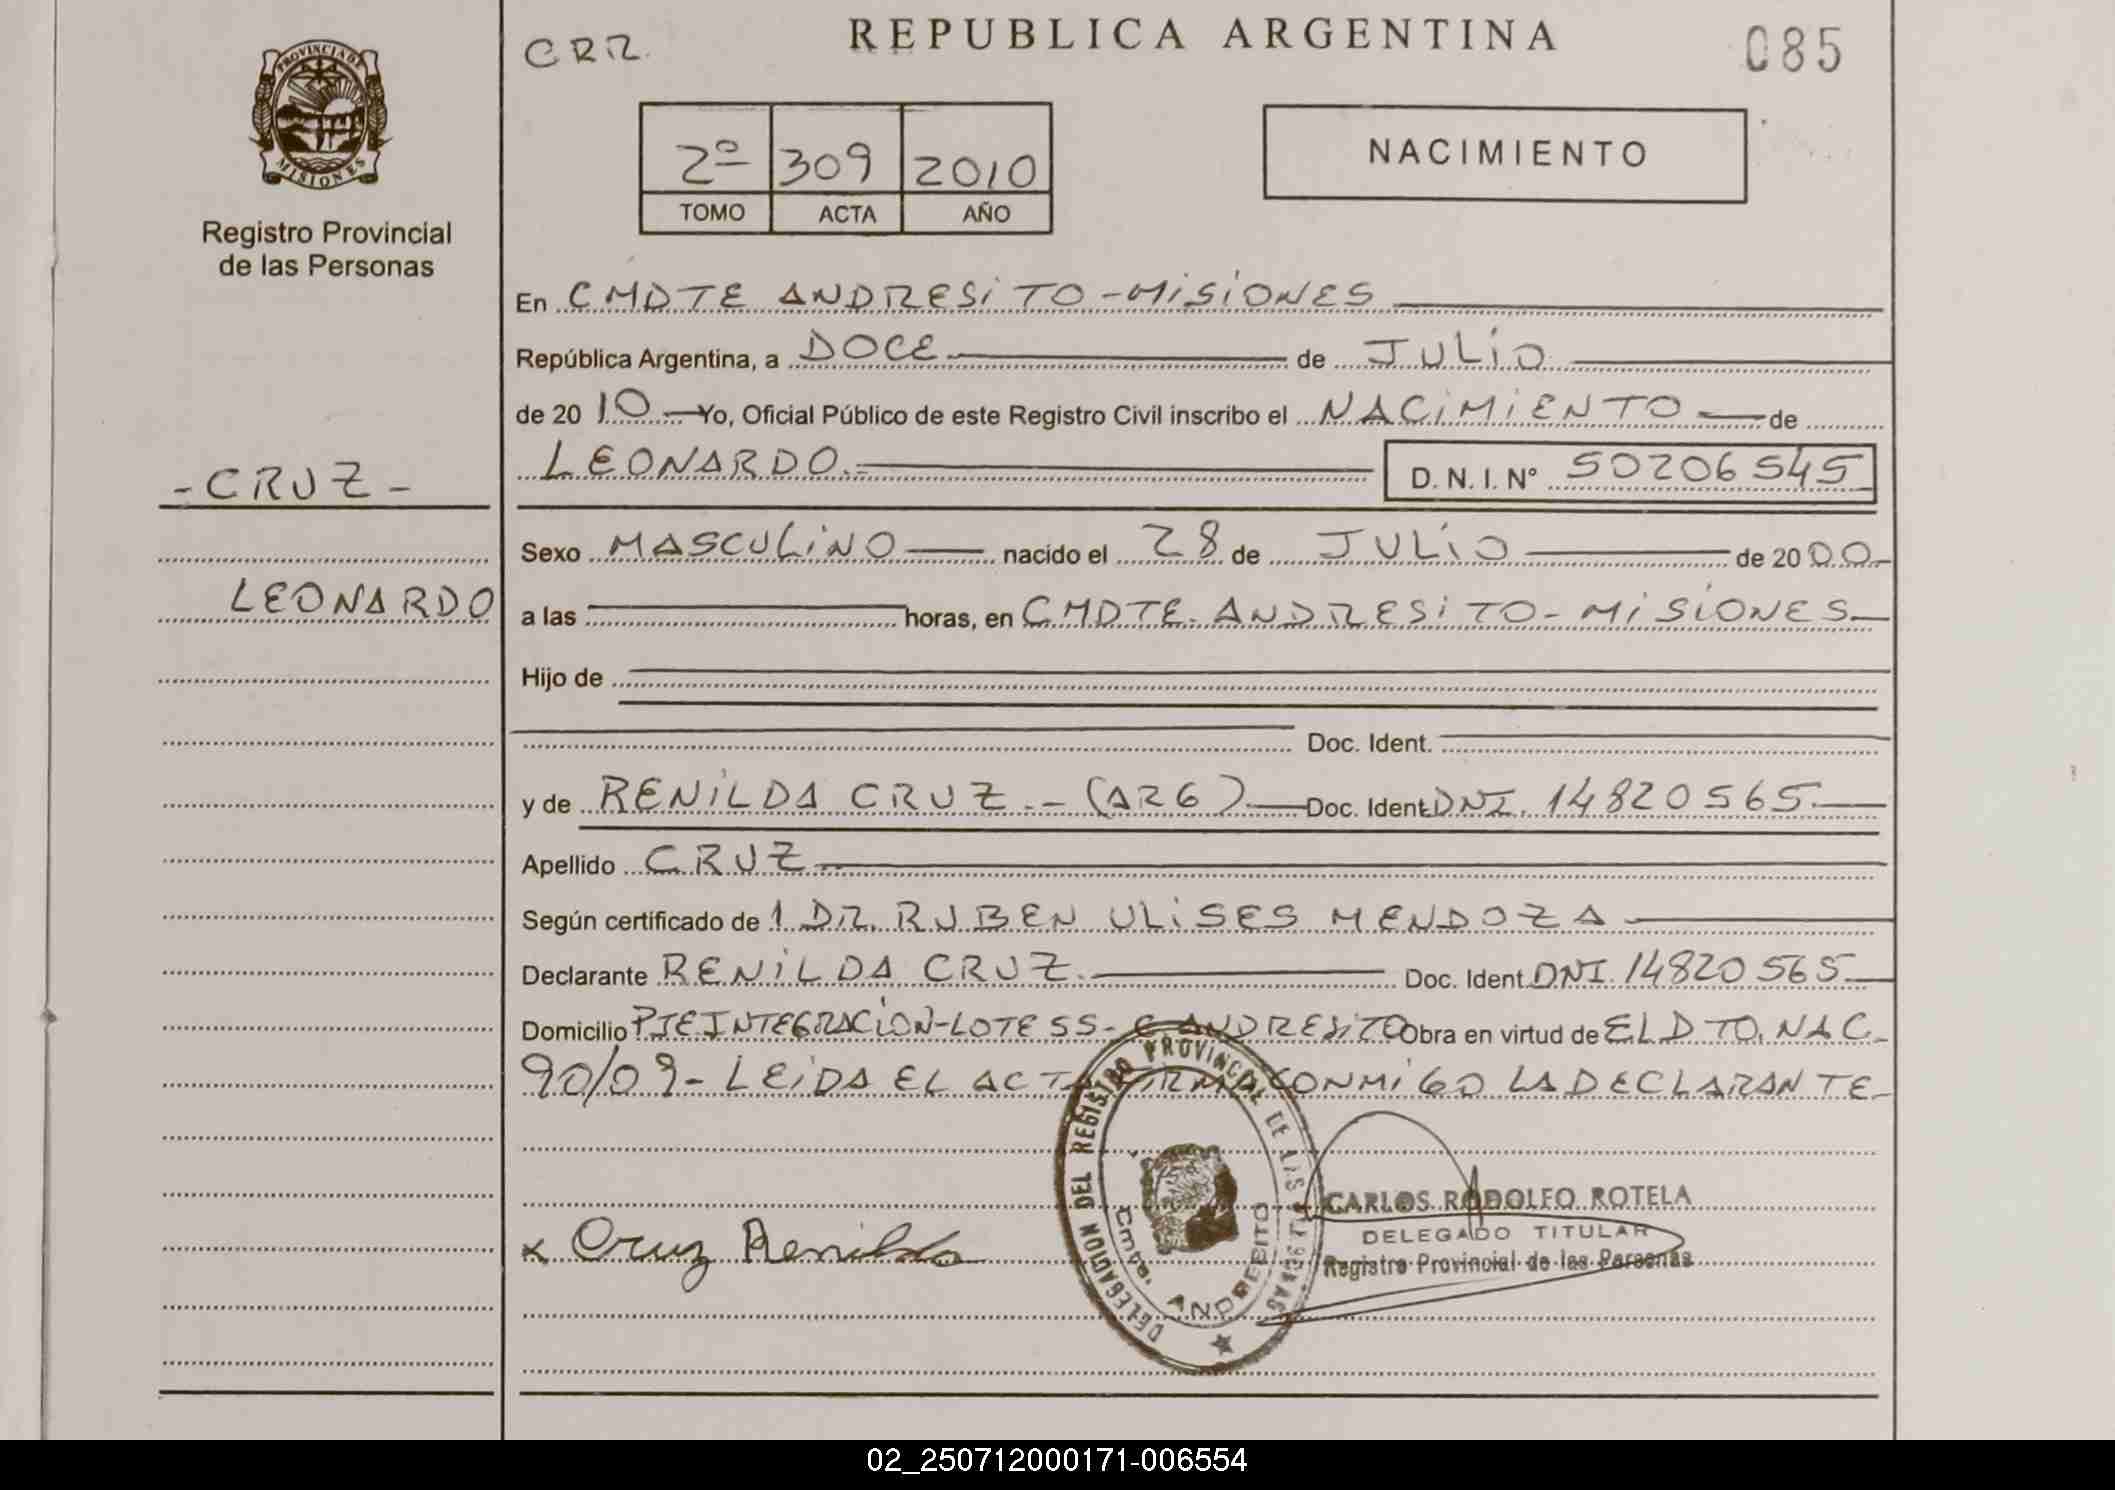 CRR.
REPUBLICA ARGENTINA
085
PROVINCIA DE
MISIONES
Registro Provincial
de las Personas
2º 309 2010
TOMO ACTA AÑO
NACIMIENTO
En CMDTE ANDRESiTO-MiSiONES
República Argentina, a DOCE de JULiO
de 2010 Yo, Oficial Público de este Registro Civil inscribo el NACiMiENTO de
LEONARDO. D. N. I. Nº 50206545
-CRUZ-
Sexo MASCULiNO nacido el 28 de JULiO de 2000
LEONARDO
a las horas, en CMDTE. ANDRESiTO-MiSiONES
Hijo de
Doc. Ident.
y de RENiLDA CRUZ.- (ARG) Doc. Ident. DNI. 14820565
Apellido CRUZ
Según certificado de 1 DR. RUBEN ULiSES MENDOZA
Declarante RENiLDA CRUZ. Doc. Ident. DNI. 14820565
Domicilio PJE INTEGRACiON-LOTE 55- C. ANDRESiTO Obra en virtud de EL DTO. NAC.
90/09- LEiDA EL ACTA FiRMA CONMiGO LA DECLARANTE
DELEGACION DEL REGISTRO PROVINCIAL DE LAS PERSONAS
Cmte. ANDRESITO
CARLOS RODOLFO ROTELA
DELEGADO TITULAR
Registro Provincial de las Personas
x Cruz Renilda
02_250712000171-006554